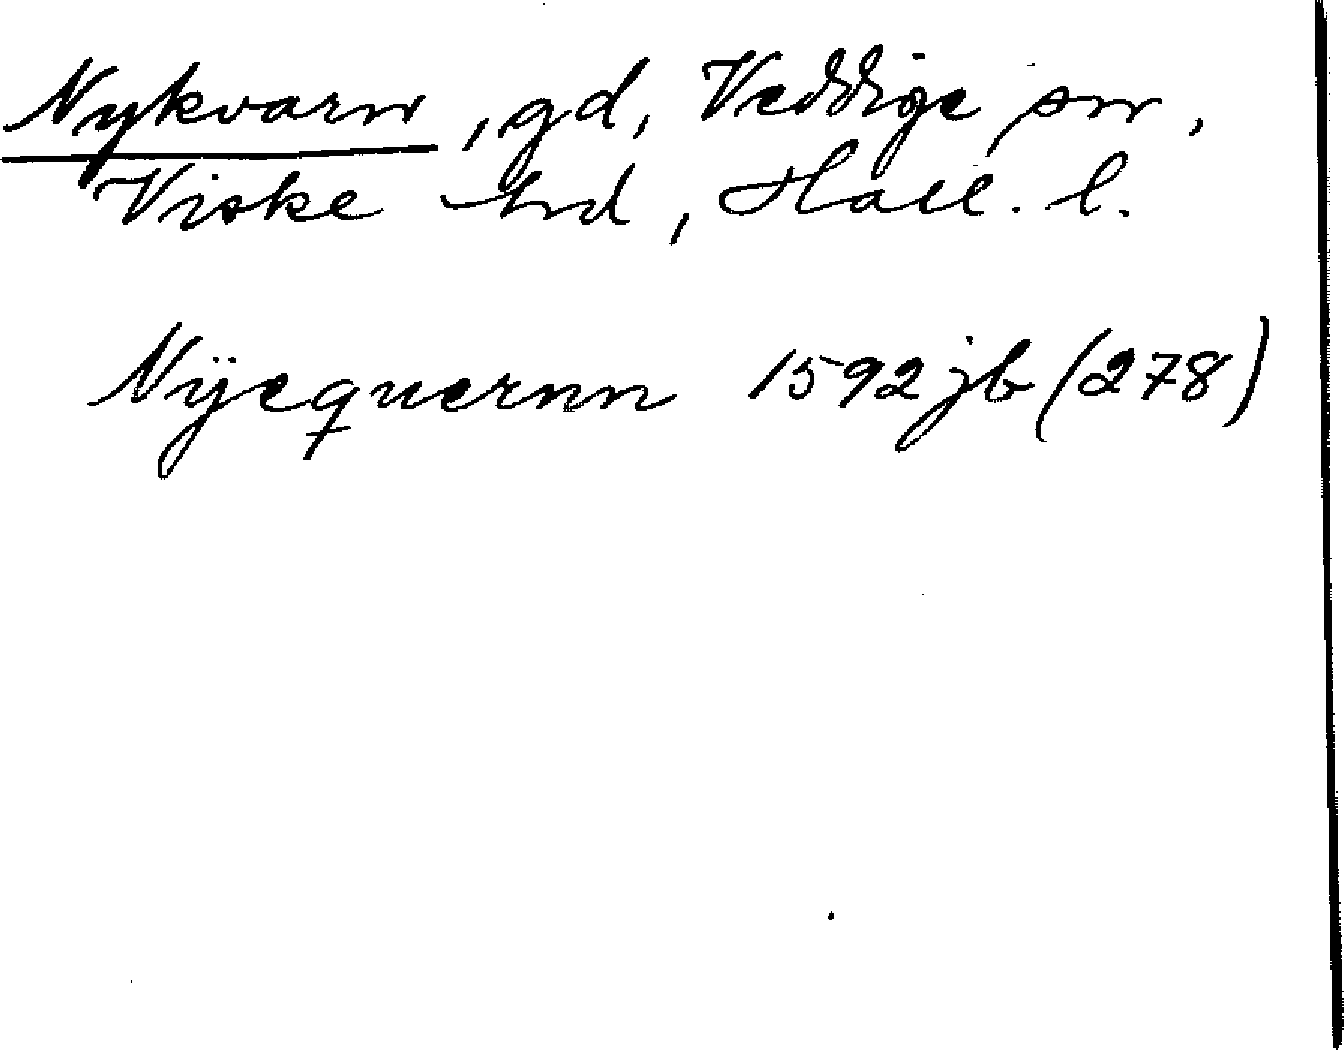 Nykvarn, gd, Veddige sn,
Viske hd, Hall. l.
Nÿequernn 1592 jb (278)